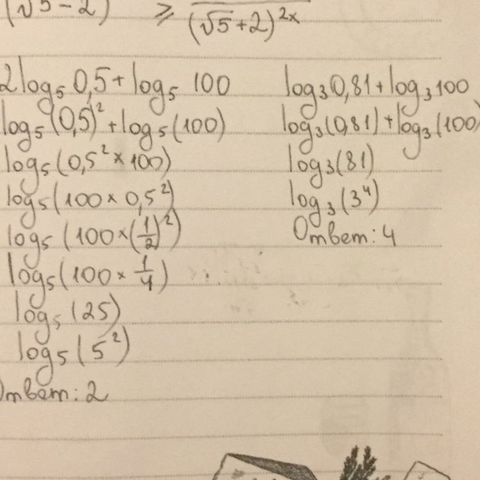 (√5 - 2) ≥ (√5+2)^2x
2log₅ 0,5 + log₅ 100
log₅(0,5)² + log₅(100)
log₅(0,5² × 100)
log₅(100 × 0,5²)
log₅(100×(1/2)²)
log₅(100 × 1/4)
log₅(25)
log₅(5²)
Ответ: 2
log₃0,81 + log₃100
log₃(0,81) + log₃(100)
log₃(81)
log₃(3⁴)
Ответ: 4